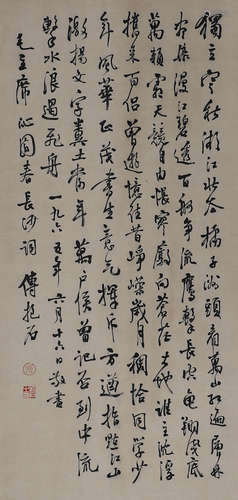 獨立寒秋湘江北去橘子洲頭看萬山紅遍層林
盡染漫江碧透百舸爭流鷹擊長空魚翔淺底
萬類霜天競自由悵寥廓問蒼茫大地誰主沉浮
攜來百侶曾遊憶往昔崢嶸歲月稠恰同學少
年風華正茂書生意氣揮斥方遒指點江山
激揚文字糞土當年萬戶侯曾記否到中流
擊水浪遏飛舟 一九六五年六月十六日敬書
毛主席沁園春長沙詞 傅抱石